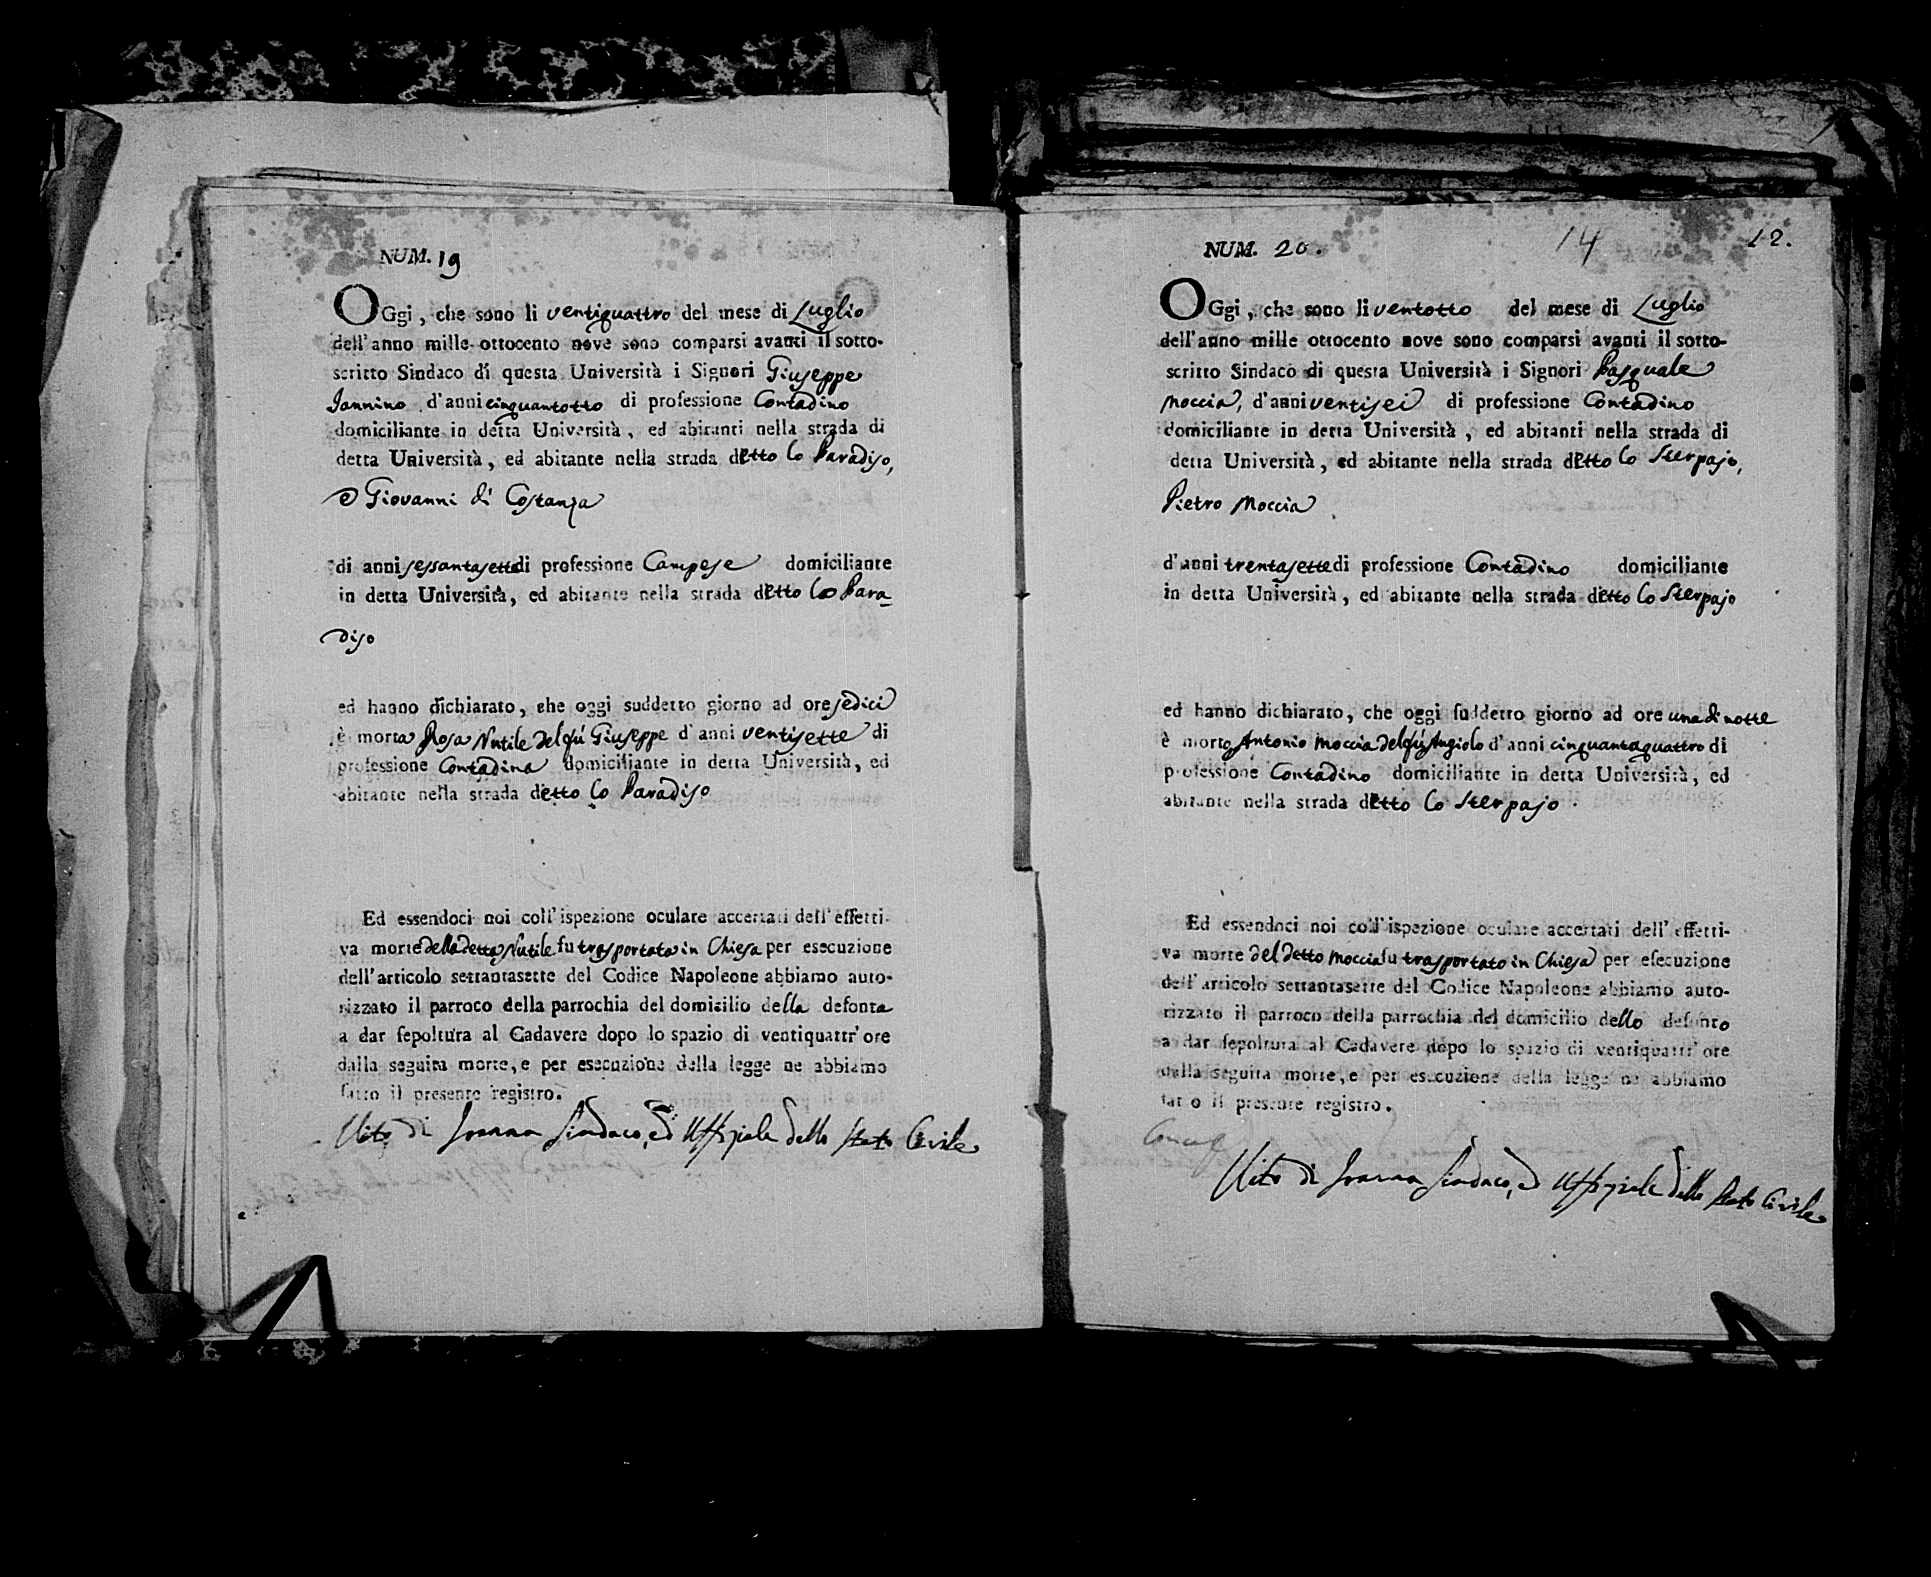 NUM. 19
OGgi, che sono li ventiquattro del mese di Luglio
dell'anno mille ottocento nove sono comparsi avanti il sotto-
scritto Sindaco di questa Università i Signori Giuseppe
Iannino d'anni cinquantotto di professione Contadino
domiciliante in detta Università, ed abitanti nella strada di
detta Università, ed abitante nella strada detto lo Paradiso,
e Giovanni di Costanza
di anni sessantasette di professione Campese domiciliante
in detta Università, ed abitante nella strada detto lo Para-
diso
ed hanno dichiarato, che oggi suddetto giorno ad ore sedici
è morta Rosa Nutile del qu Giuseppe d'anni ventisette di
professione Contadina domiciliante in detta Università, ed
abitante nella strada detto lo Paradiso
Ed essendoci noi coll'ispezione oculare accertati dell'effetti-
va morte della detta Nutile fu trasportata in Chiesa per esecuzione
dell'articolo settantasette del Codice Napoleone abbiamo auto-
rizzato il parroco della parrochia del domicilio della defonta
a dar sepoltura al Cadavere dopo lo spazio di ventiquattr'ore
dalla seguita morte, e per esecuzione della legge ne abbiamo
fatto il presente registro.
Vito di Ioanna Sindaco, ed Uffiziale dello Stato Civile
NUM. 20. 14 12.
OGgi, che sono li ventotto del mese di Luglio
dell'anno mille ottocento nove sono comparsi avanti il sotto-
scritto Sindaco di questa Università i Signori Pasquale
Moccia, d'anni ventisei di professione Contadino
domiciliante in detta Università, ed abitanti nella strada di
detta Università, ed abitante nella strada detto lo Sterpajo,
Pietro Moccia
d'anni trentasette di professione Contadino domiciliante
in detta Università, ed abitante nella strada detto lo Sterpajo
ed hanno dichiarato, che oggi suddetto giorno ad ore una di notte
è morto Antonio Moccia del qu Angiolo d'anni cinquantaquattro di
professione Contadino domiciliante in detta Università, ed
abitante nella strada detto lo Sterpajo.
Ed essendoci noi coll'ispezione oculare accertati dell'effetti-
va morte del detto Moccia fu trasportato in Chiesa per esecuzione
dell'articolo settantasette del Codice Napoleone abbiamo auto-
rizzato il parroco della parrochia del domicilio dello defonto
a dar sepoltura al Cadavere dopo lo spazio di ventiquattr'ore
dalla seguita morte, e per esecuzione della legge ne abbiamo
fatto il presente registro.
Vito di Ioanna Sindaco, ed Uffiziale dello Stato Civile